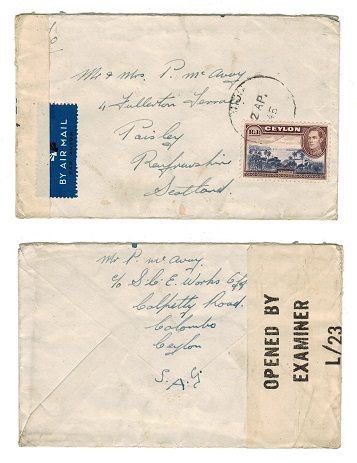 Mr & Mrs. P. McAvoy
4 Fullerton Terrace
Paisley
Renfrewshire
Scotland.
BY AIR MAIL
2 AP.
45
CEYLON
Mr P. McAvoy.
c/o S.C.E. Works
Colpetty Road.
Colombo
Ceylon
S.A.G
OPENED BY
EXAMINER
L/23